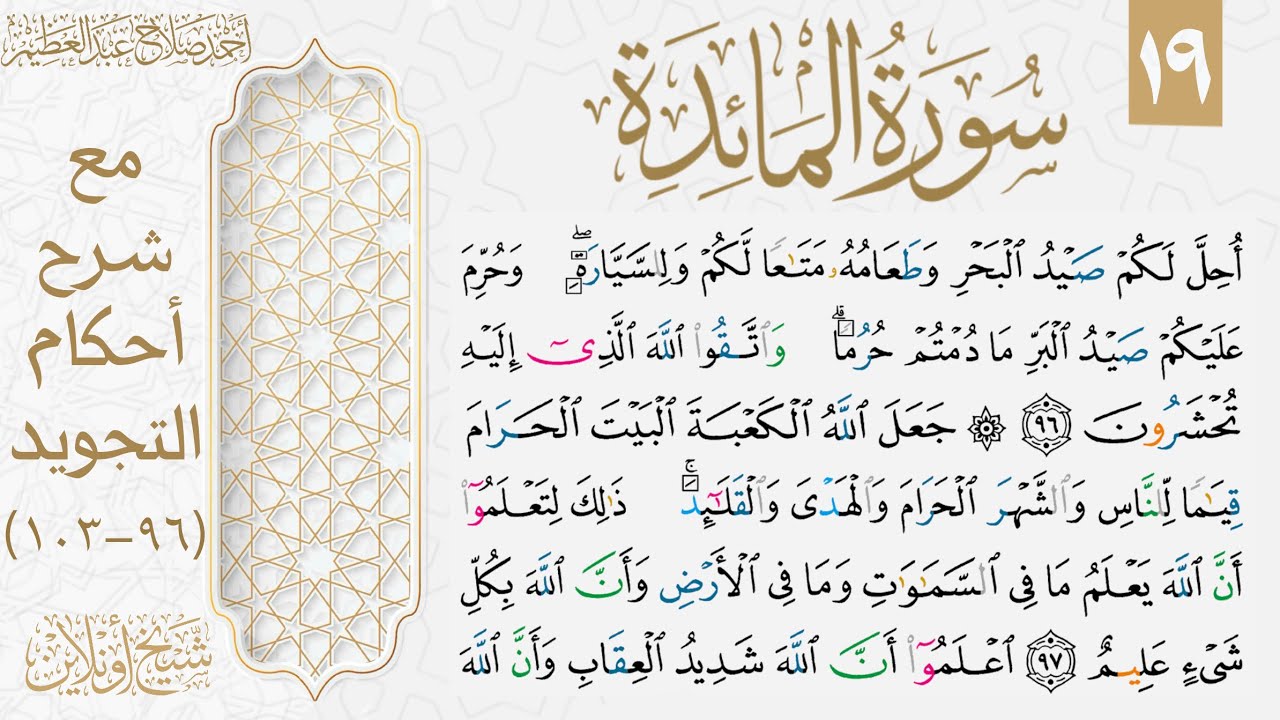 ١٩
سُورَةُ الْمَائِدَةِ
أُحِلَّ لَكُمۡ صَيۡدُ ٱلۡبَحۡرِ وَطَعَامُهُۥ مَتَٰعٗا لَّكُمۡ وَلِلسَّيَّارَةِۖ وَحُرِّمَ
عَلَيۡكُمۡ صَيۡدُ ٱلۡبَرِّ مَا دُمۡتُمۡ حُرُمٗاۗ وَٱتَّقُواْ ٱللَّهَ ٱلَّذِيٓ إِلَيۡهِ
تُحۡشَرُونَ ٩٦ ۞ جَعَلَ ٱللَّهُ ٱلۡكَعۡبَةَ ٱلۡبَيۡتَ ٱلۡحَرَامَ
قِيَٰمٗا لِّلنَّاسِ وَٱلشَّهۡرَ ٱلۡحَرَامَ وَٱلۡهَدۡيَ وَٱلۡقَلَٰٓئِدَۚ ذَٰلِكَ لِتَعۡلَمُوٓاْ
أَنَّ ٱللَّهَ يَعۡلَمُ مَا فِي ٱلسَّمَٰوَٰتِ وَمَا فِي ٱلۡأَرۡضِ وَأَنَّ ٱللَّهَ بِكُلِّ
شَيۡءٍ عَلِيمٌ ٩٧ ٱعۡلَمُوٓاْ أَنَّ ٱللَّهَ شَدِيدُ ٱلۡعِقَابِ وَأَنَّ ٱللَّهَ
أحمد صلاح عبد العظيم
مع
شرح
أحكام
التجويد
(٩٦-١٠٣)
شيخ أونلاين